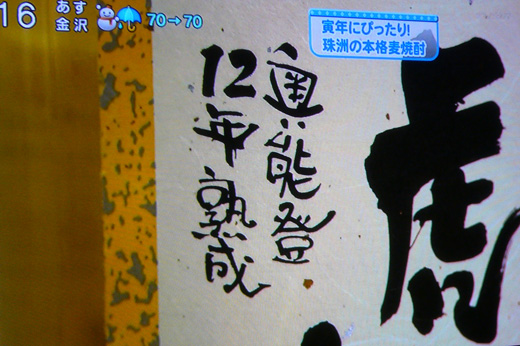 16 あす
金沢 70→70
寅年にぴったり!
珠洲の本格麦焼酎
虎
奥能登
12年熟成